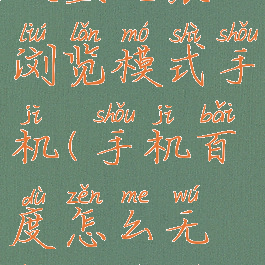 liú lǎn mó shì shǒu
浏览模式手
jī shǒu jī bǎi
机(手机百
dù zěn me wú
度怎么无